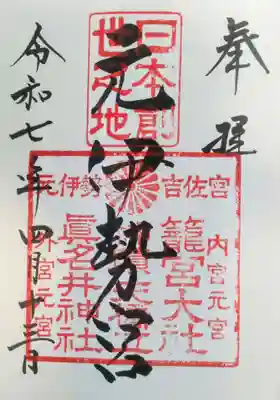 奉拝
日本創
世之地
元伊勢宮
元伊勢 吉佐宮
内宮元宮
籠宮大社
眞名井神社
外宮元宮
令和七年四月十三日